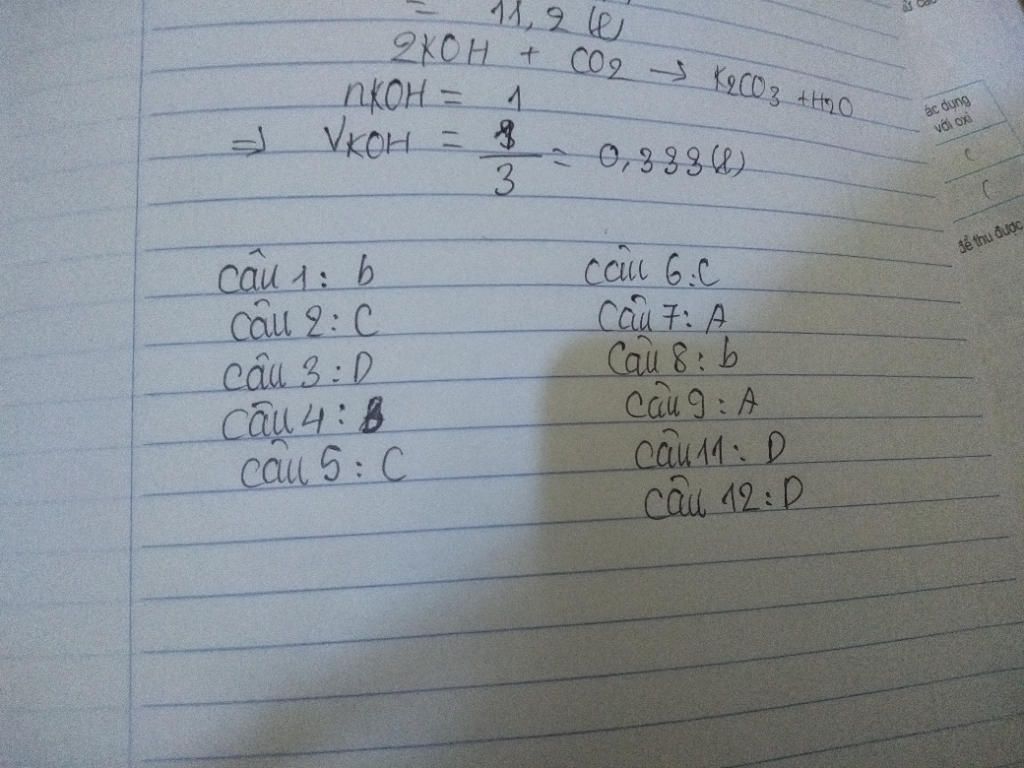 = 11,2 (l)
2KOH + CO2 → K2CO3 + H2O
nKOH = 1
=> VKOH = 1/3 = 0,333(l)
Câu 1: b
Câu 2: C
Câu 3: D
Câu 4: B
Câu 5: C
Câu 6: C
Câu 7: A
Câu 8: b
Câu 9: A
Câu 11: D
Câu 12: D
ác dụng
với oxi
để thu được